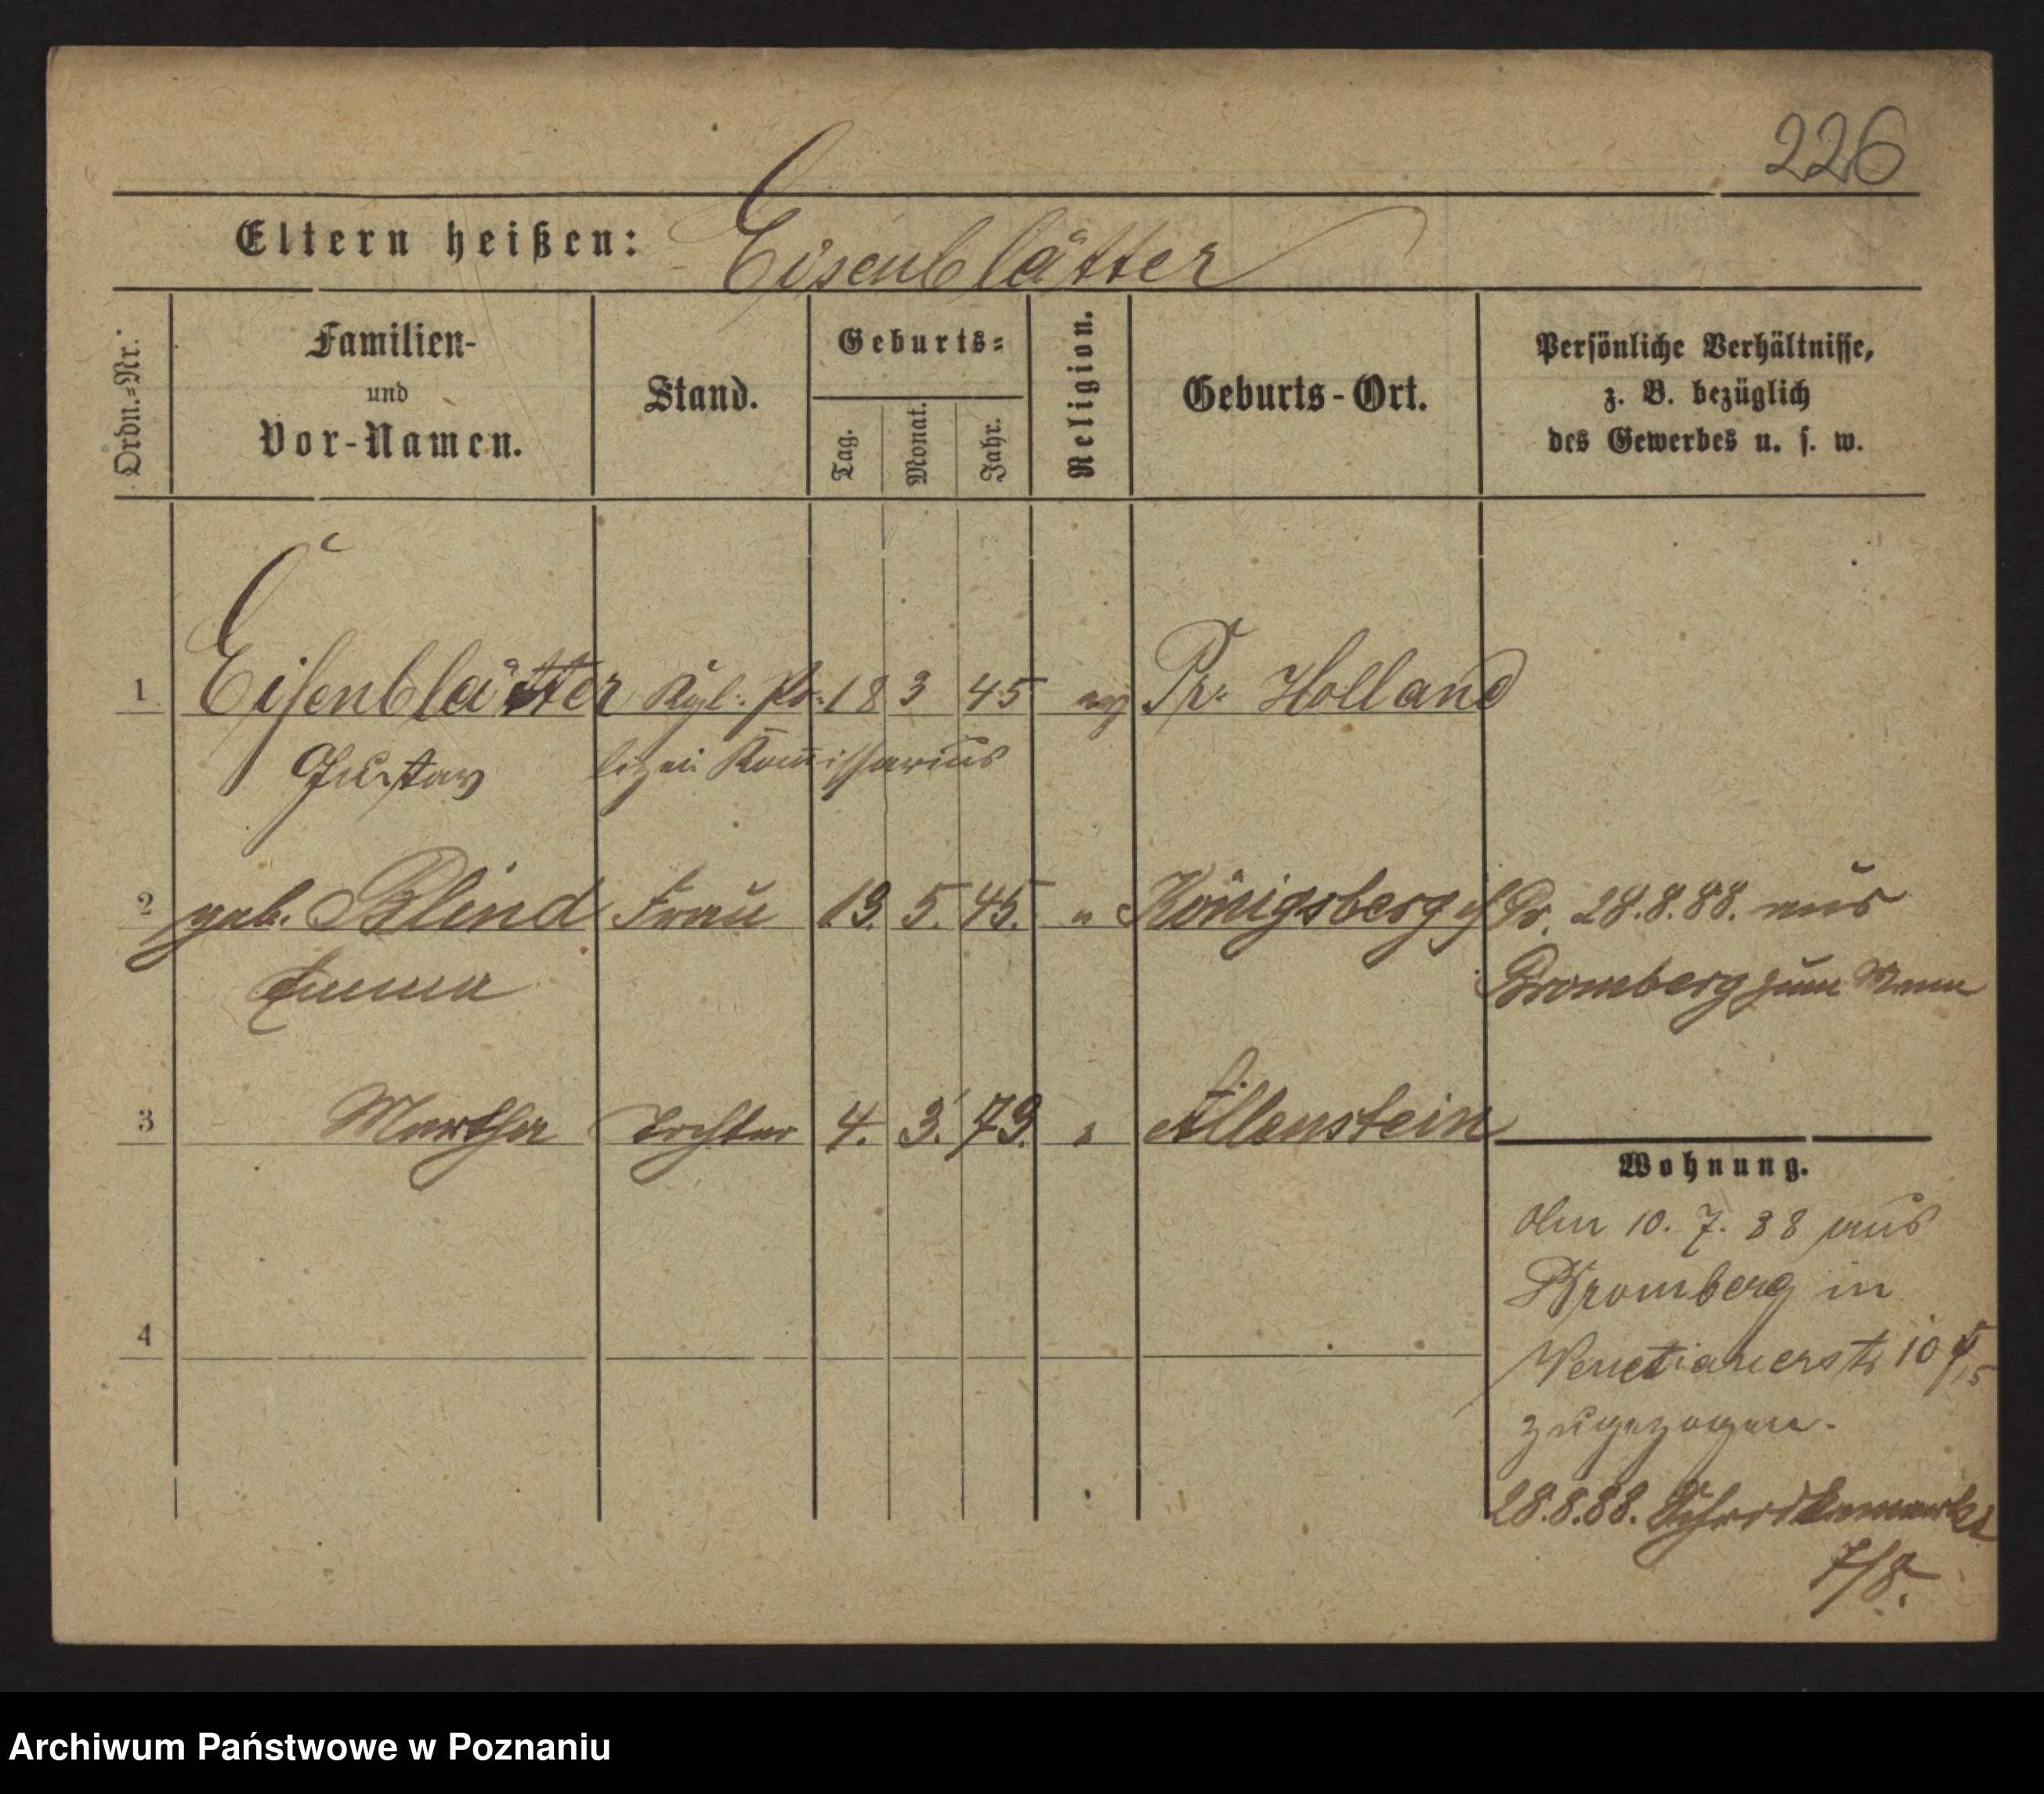 226
Eltern heißen: Eisenblätter
Ordn.-Nr. Familien- und Vor-Namen. Stand. Geburts- Tag. Monat. Jahr. Religion. Geburts-Ort. Persönliche Verhältnisse, z. B. bezüglich des Gewerbes u. s. w.
1 Eisenblätter Kgl. Po- 18 3 45 ev Pr. Holland
Gustav lizei Komissarius
2 geb. Blind Frau 19. 5. 45. " Königsberg i/ Pr. 28.8.88. aus
Emma Bromberg zum Mann
3 Martha Tochter 4. 3. 79. " Allenstein
Wohnung.
Am 10. 7. 88 aus
Bromberg in
4 Venetianerstr 10
zugezogen.
28.8.88.
7/8.
Archiwum Państwowe w Poznaniu